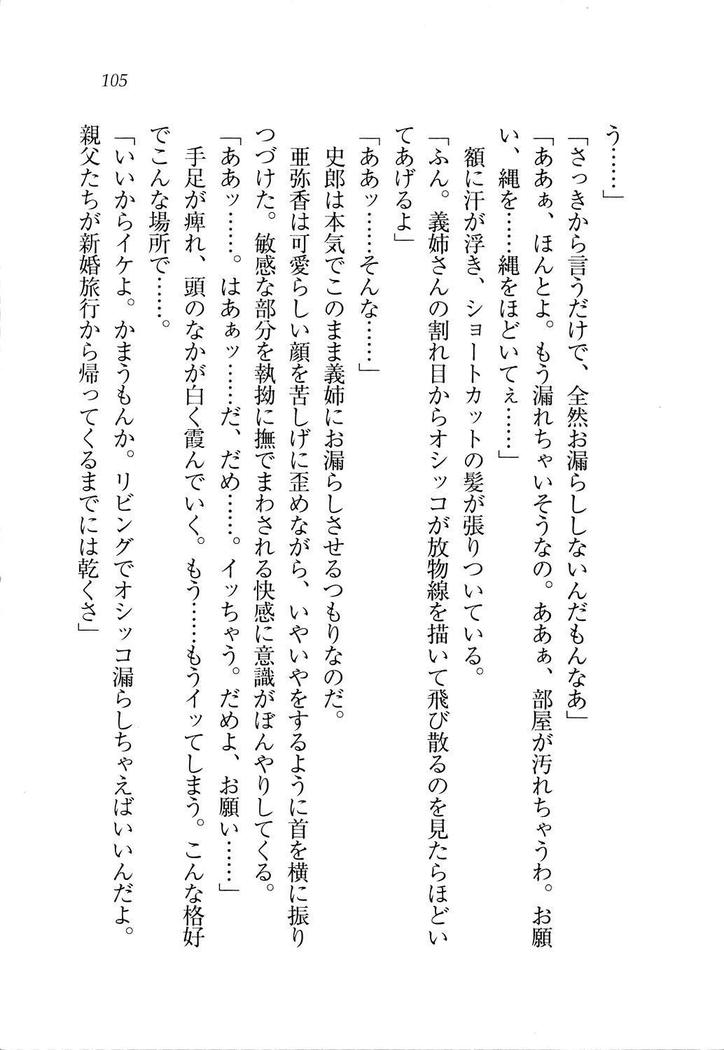 105
う……」
「さっきから言うだけで、全然お漏らししないんだもんなあ」
「ああぁ、ほんとよ。もう漏れちゃいそうなの。ああぁ、部屋が汚れちゃうわ。お願
い、縄を……縄をほどいてぇ……」
額に汗が浮き、ショートカットの髪が張りついている。
「ふん。義姉さんの割れ目からオシッコが放物線を描いて飛び散るのを見たらほどい
てあげるよ」
「ああッ……そんな……」
史郎は本気でこのまま義姉にお漏らしさせるつもりなのだ。
亜弥香は可愛らしい顔を苦しげに歪めながら、いやいやをするように首を横に振り
つづけた。敏感な部分を執拗に撫でまわされる快感に意識がぼんやりしてくる。
「ああッ……。はあぁッ……だ、だめ……。イッちゃう。だめよ、お願い……」
手足が痺れ、頭のなかが白く霞んでいく。もう……もうイッてしまう。こんな格好
でこんな場所で……。
「いいからイケよ。かまうもんか。リビングでオシッコ漏らしちゃえばいいんだよ。
親父たちが新婚旅行から帰ってくるまでには乾くさ」